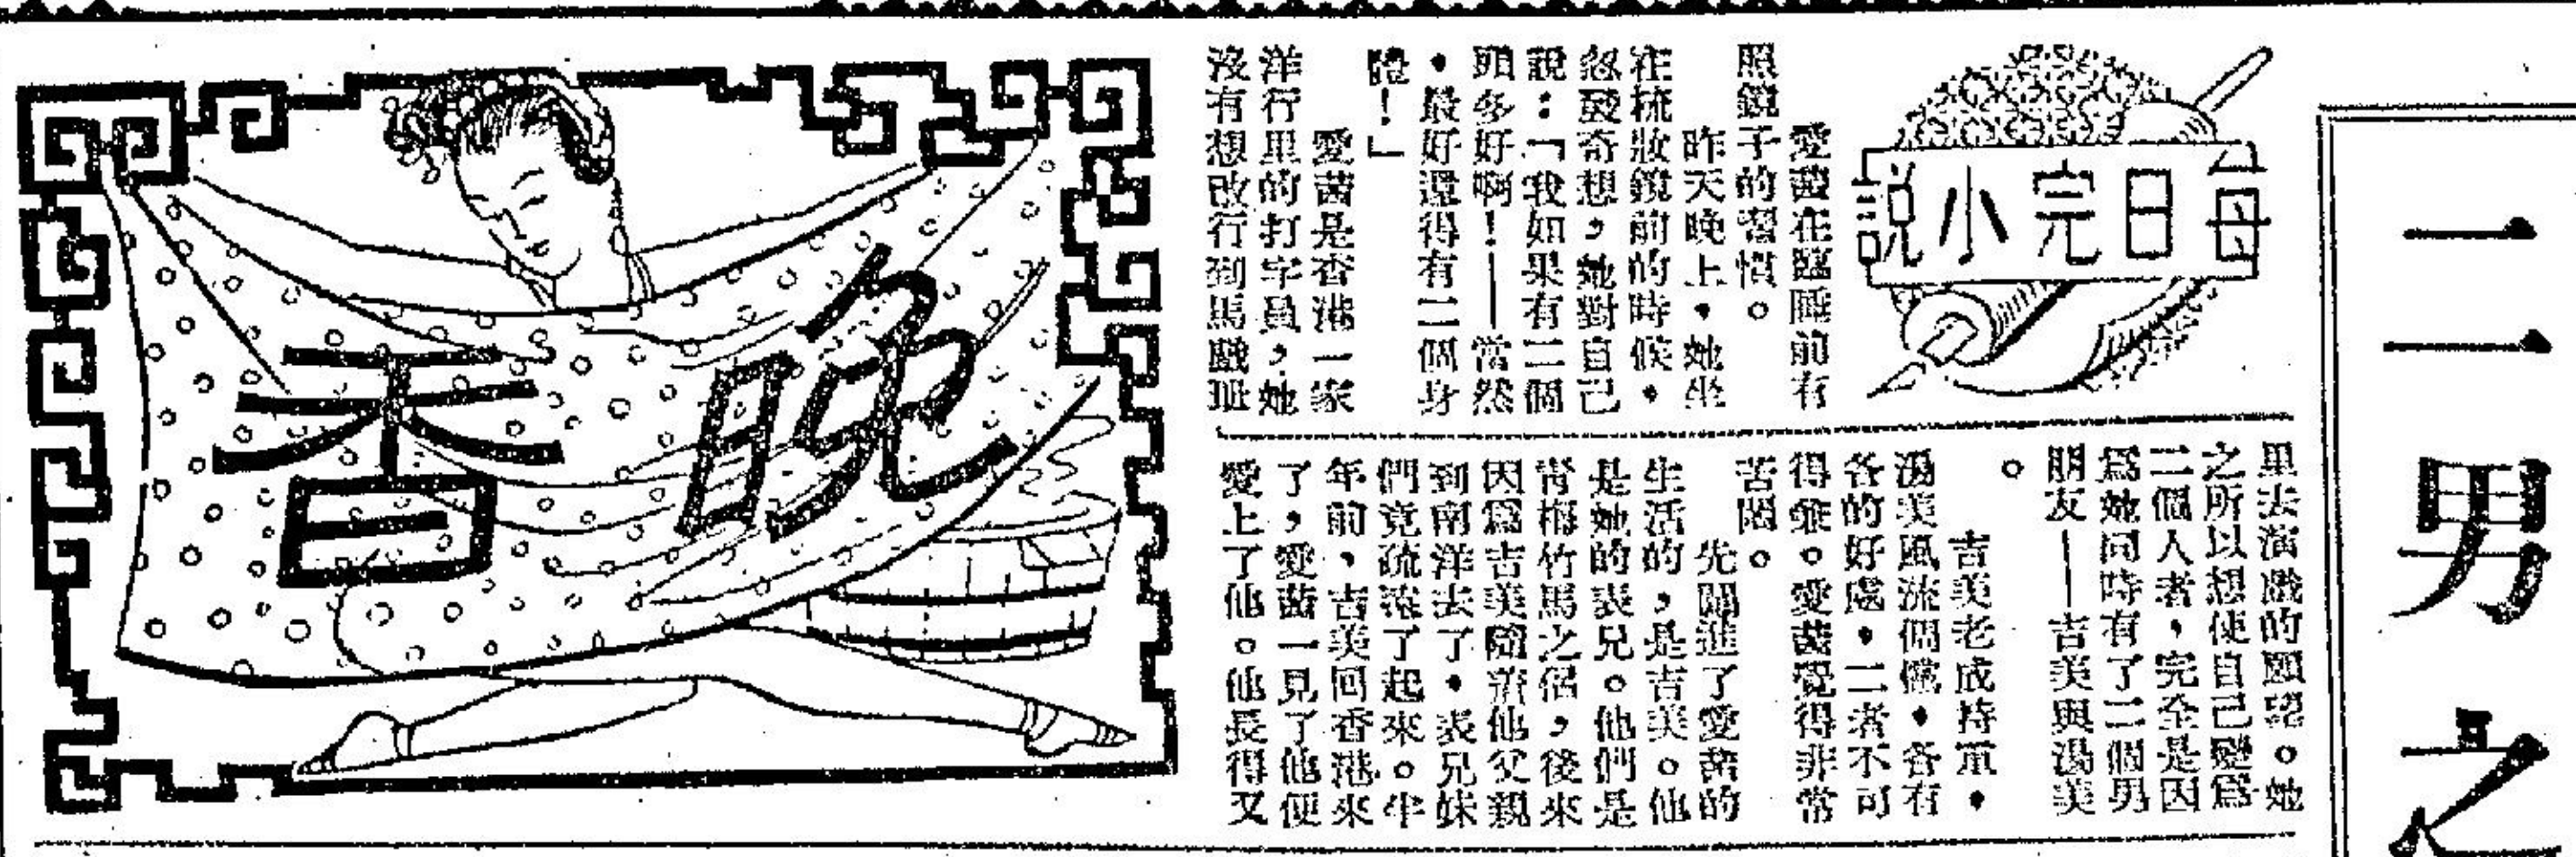 二男之
每日完小説
愛茵在臨睡前有
照鏡子的習慣。
昨天晚上，她坐
在梳妝鏡前的時候，
忽發奇想，她對自己
說：「我如果有二個
頭多好啊！——當然
，最好還得有二個身
體！」
愛茵是香港一家
洋行里的打字員，她
沒有想改行到馬戲班
里去演戲的願望。她
之所以想使自己變爲
二個人者，完全是因
爲她同時有了二個男
朋友——吉美與湯美
。
吉美老成持重，
湯美風流倜儻，各有
各的好處，二者不可
得兼。愛茵覺得非常
苦悶。
先闖進了愛茵的
生活的，是吉美。他
是她的表兄。他們是
青梅竹馬之侶，後來
因爲吉美隨着他父親
到南洋去了，表兄妹
們竟疏遠了起來。半
年前，吉美回香港來
了，愛茵一見了他便
愛上了他。他長得又
晚香